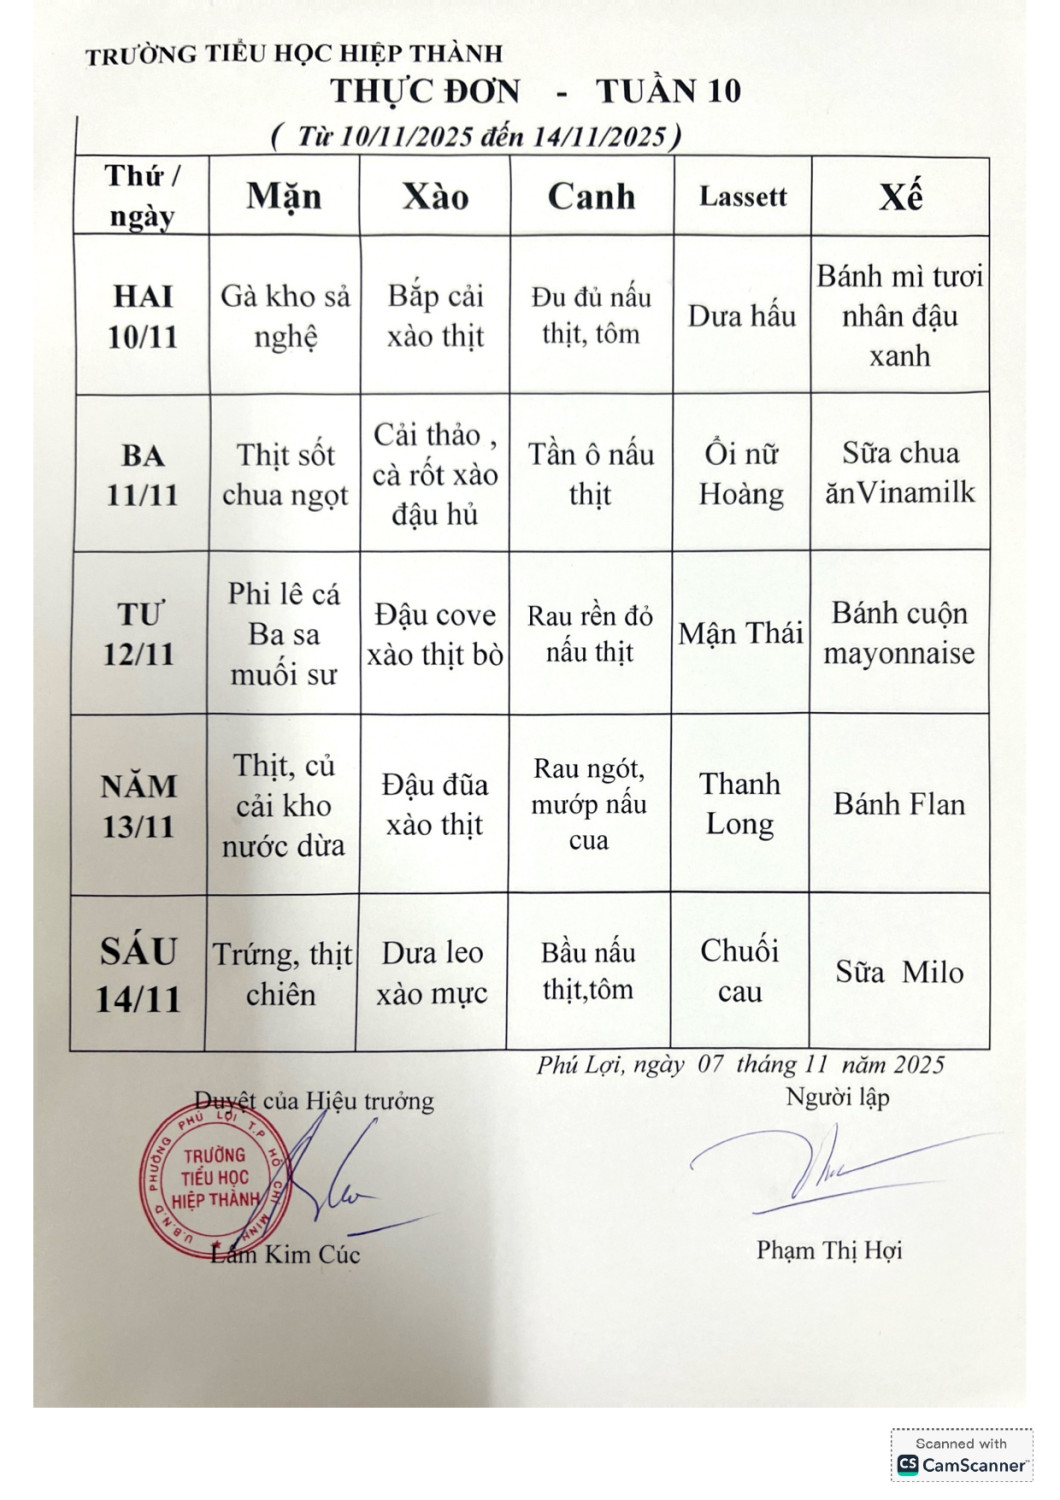 TRƯỜNG TIỂU HỌC HIỆP THÀNH
THỰC ĐƠN - TUẦN 10
( Từ 10/11/2025 đến 14/11/2025 )
Thứ / ngày
Mặn
Xào
Canh
Lassett
Xế
HAI
10/11
Gà kho sả
nghệ
Bắp cải
xào thịt
Đu đủ nấu
thịt, tôm
Dưa hấu
Bánh mì tươi
nhân đậu
xanh
BA
11/11
Thịt sốt
chua ngọt
Cải thảo ,
cà rốt xào
đậu hủ
Tần ô nấu
thịt
Ổi nữ
Hoàng
Sữa chua
ănVinamilk
TƯ
12/11
Phi lê cá
Ba sa
muối sư
Đậu cove
xào thịt bò
Rau rền đỏ
nấu thịt
Mận Thái
Bánh cuộn
mayonnaise
NĂM
13/11
Thịt, củ
cải kho
nước dừa
Đậu đũa
xào thịt
Rau ngót,
mướp nấu
cua
Thanh
Long
Bánh Flan
SÁU
14/11
Trứng, thịt
chiên
Dưa leo
xào mực
Bầu nấu
thịt,tôm
Chuối
cau
Sữa Milo
Phú Lợi, ngày 07 tháng 11 năm 2025
Duyệt của Hiệu trưởng
Người lập
U.B.N.D PHƯỜNG PHÚ LỢI T.P HỒ CHÍ MINH
TRƯỜNG
TIỂU HỌC
HIỆP THÀNH
Lâm Kim Cúc
Phạm Thị Hợi
Scanned with
CS CamScanner